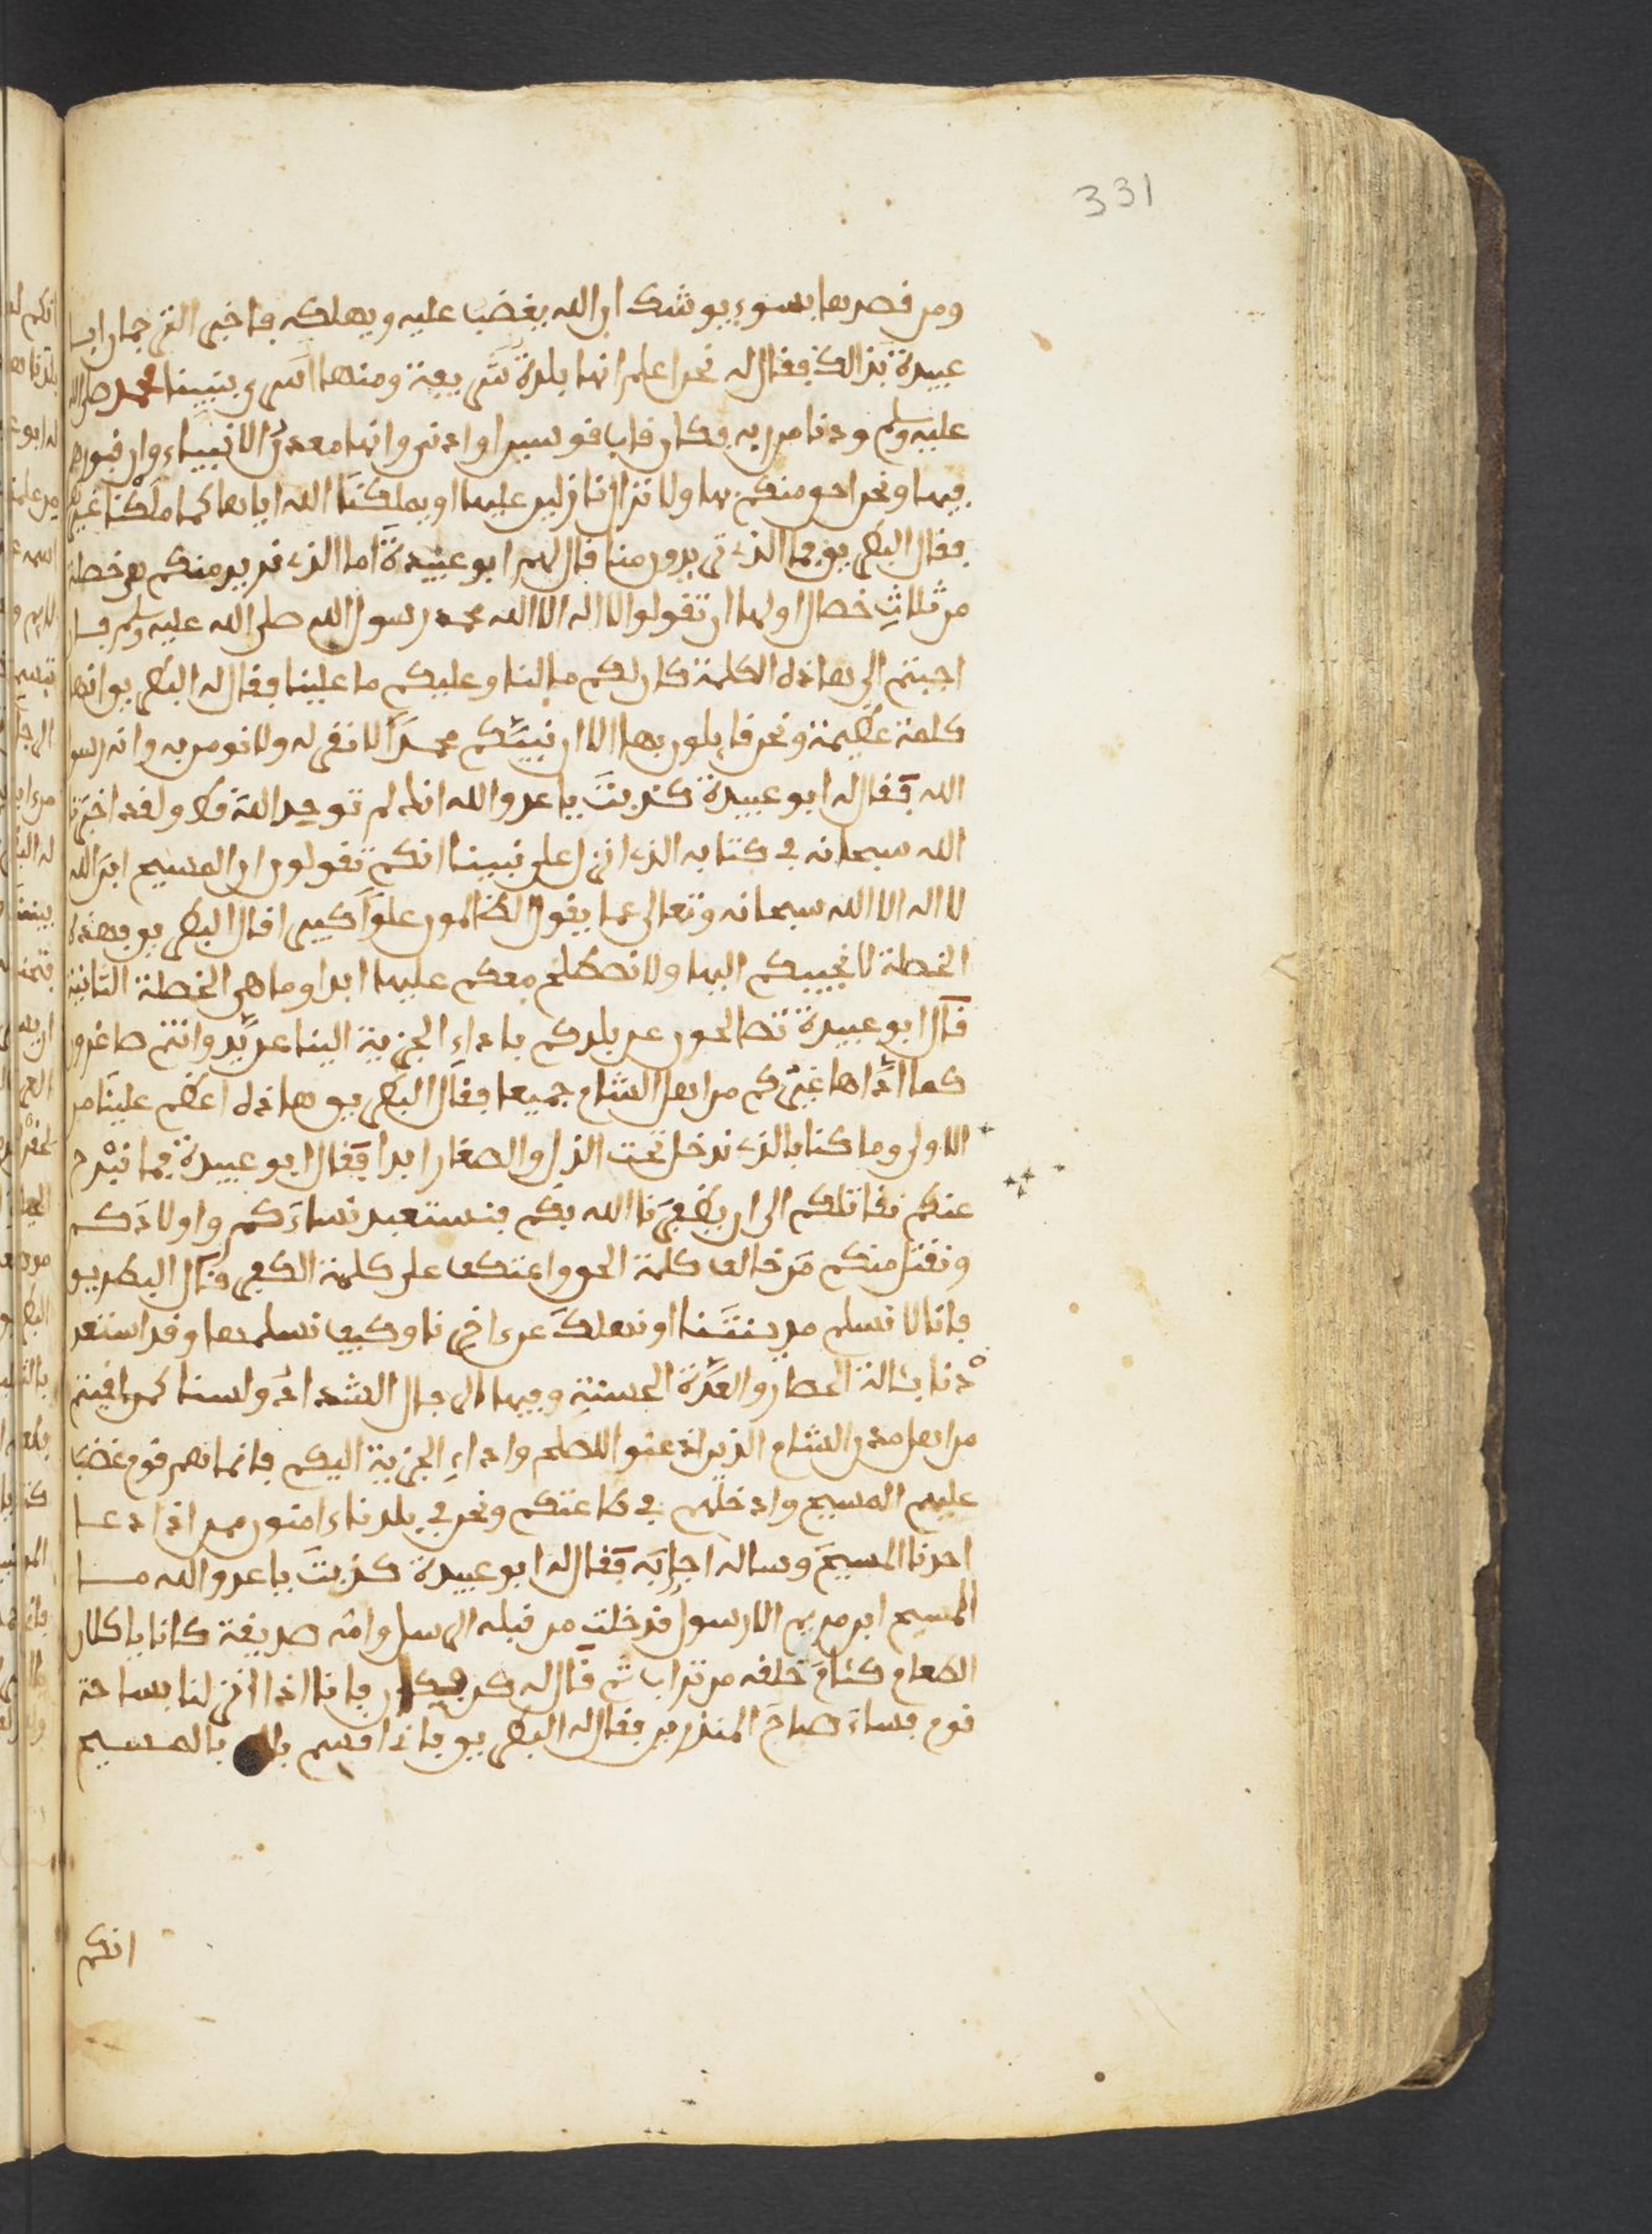 331
ومن قصدها بسوء يوشك ان الله يغضب عليه ويهلكه فاخبر الترجمان ابا
عبيدة بذالك فقال له نحن اعلم انها بلدة شريفة ومنها اسرى بنبينا محمد صلى الله
عليه وسلم ودنا من ربه فكان قاب قوسين او ادنى وانها معدن الانبياء وان قبورهم
فيها ونحن احق منكم بها ولا نزال نازلين عليها او يملكنا الله اياها كما ملكنا غيرها
فقال البطريق فما الذي تريدون منا قال لهم ابو عبيدة اما الذي نريد منكم هي خصلة
من ثلاث خصال اولها ان تقولوا لا اله الا الله محمد رسول الله صلى الله عليه وسلم فان
اجبتم الى هاذه الكلمة كان لكم ما لنا وعليكم ما علينا فقال له البطريق انها
كلمة عظيمة ونحن قايلون بها الا ان نبيكم محمدا لا نقر له ولا نومن به وانه رسول
الله فقال له ابو عبيدة كذبت يا عدو الله انك لم توحد الله قط ولقد اخبرنا
الله سبحانه في كتابه الذي انزل على نبينا انكم تقولون ان المسيح ابن الله
لا اله الا الله سبحانه وتعالى عما يقول الظالمون علوا كبيرا قال البطريق فهذه
الخصلة لا نجيبكم اليها ولا نصطلح معكم عليها ابدا وما هي الخصلة الثانية
قال ابو عبيدة تصالحون عن بلدكم باداء الجزية الينا عن يد وانتم صاغرون
كما اداها غيركم من اهل الشام جميعا فقال البطريق هاذه اعظم علينا من
الاولى وما كنا بالذي ندخل تحت الذل والصغار ابدا فقال ابو عبيدة فما نبرح
عنكم نقاتلكم الى ان يظفرنا الله بكم فنستعبد نساءكم واولادكم
ونقتل منكم من خالف كلمة الحق واعتكف على كلمة الكفر قال البطريق
فانا لا نسلم مدينتنا او نهلك عن اخرنا وكيف نسلمها وقد استعد
دنا بئالة الحصار والعدة الحسنة وفيها الرجال الشداد ولسنا كمن لقيتم
من اهل مدن الشام الذين اذعنوا للصلح واداء الجزية اليكم فانما هم قوم غضب
عليهم المسيح وادخلهم في طاعتكم ونحن في بلدنا ءامنون من اذا دعا
احدنا المسيح وساله اجابه فقال له ابو عبيدة كذبت يا عدو الله مــا
المسيح ابن مريم الا رسول قد خلت من قبله الرسل وامه صديقة كانا ياكلان
الطعام كئادم خلقه من تراب ثم قال له كن فيكون فانا اذا انزلنا بساحة
قوم فساء صباح المنذرين فقال له البطريق فانا اقسم بالمسيح
انكم